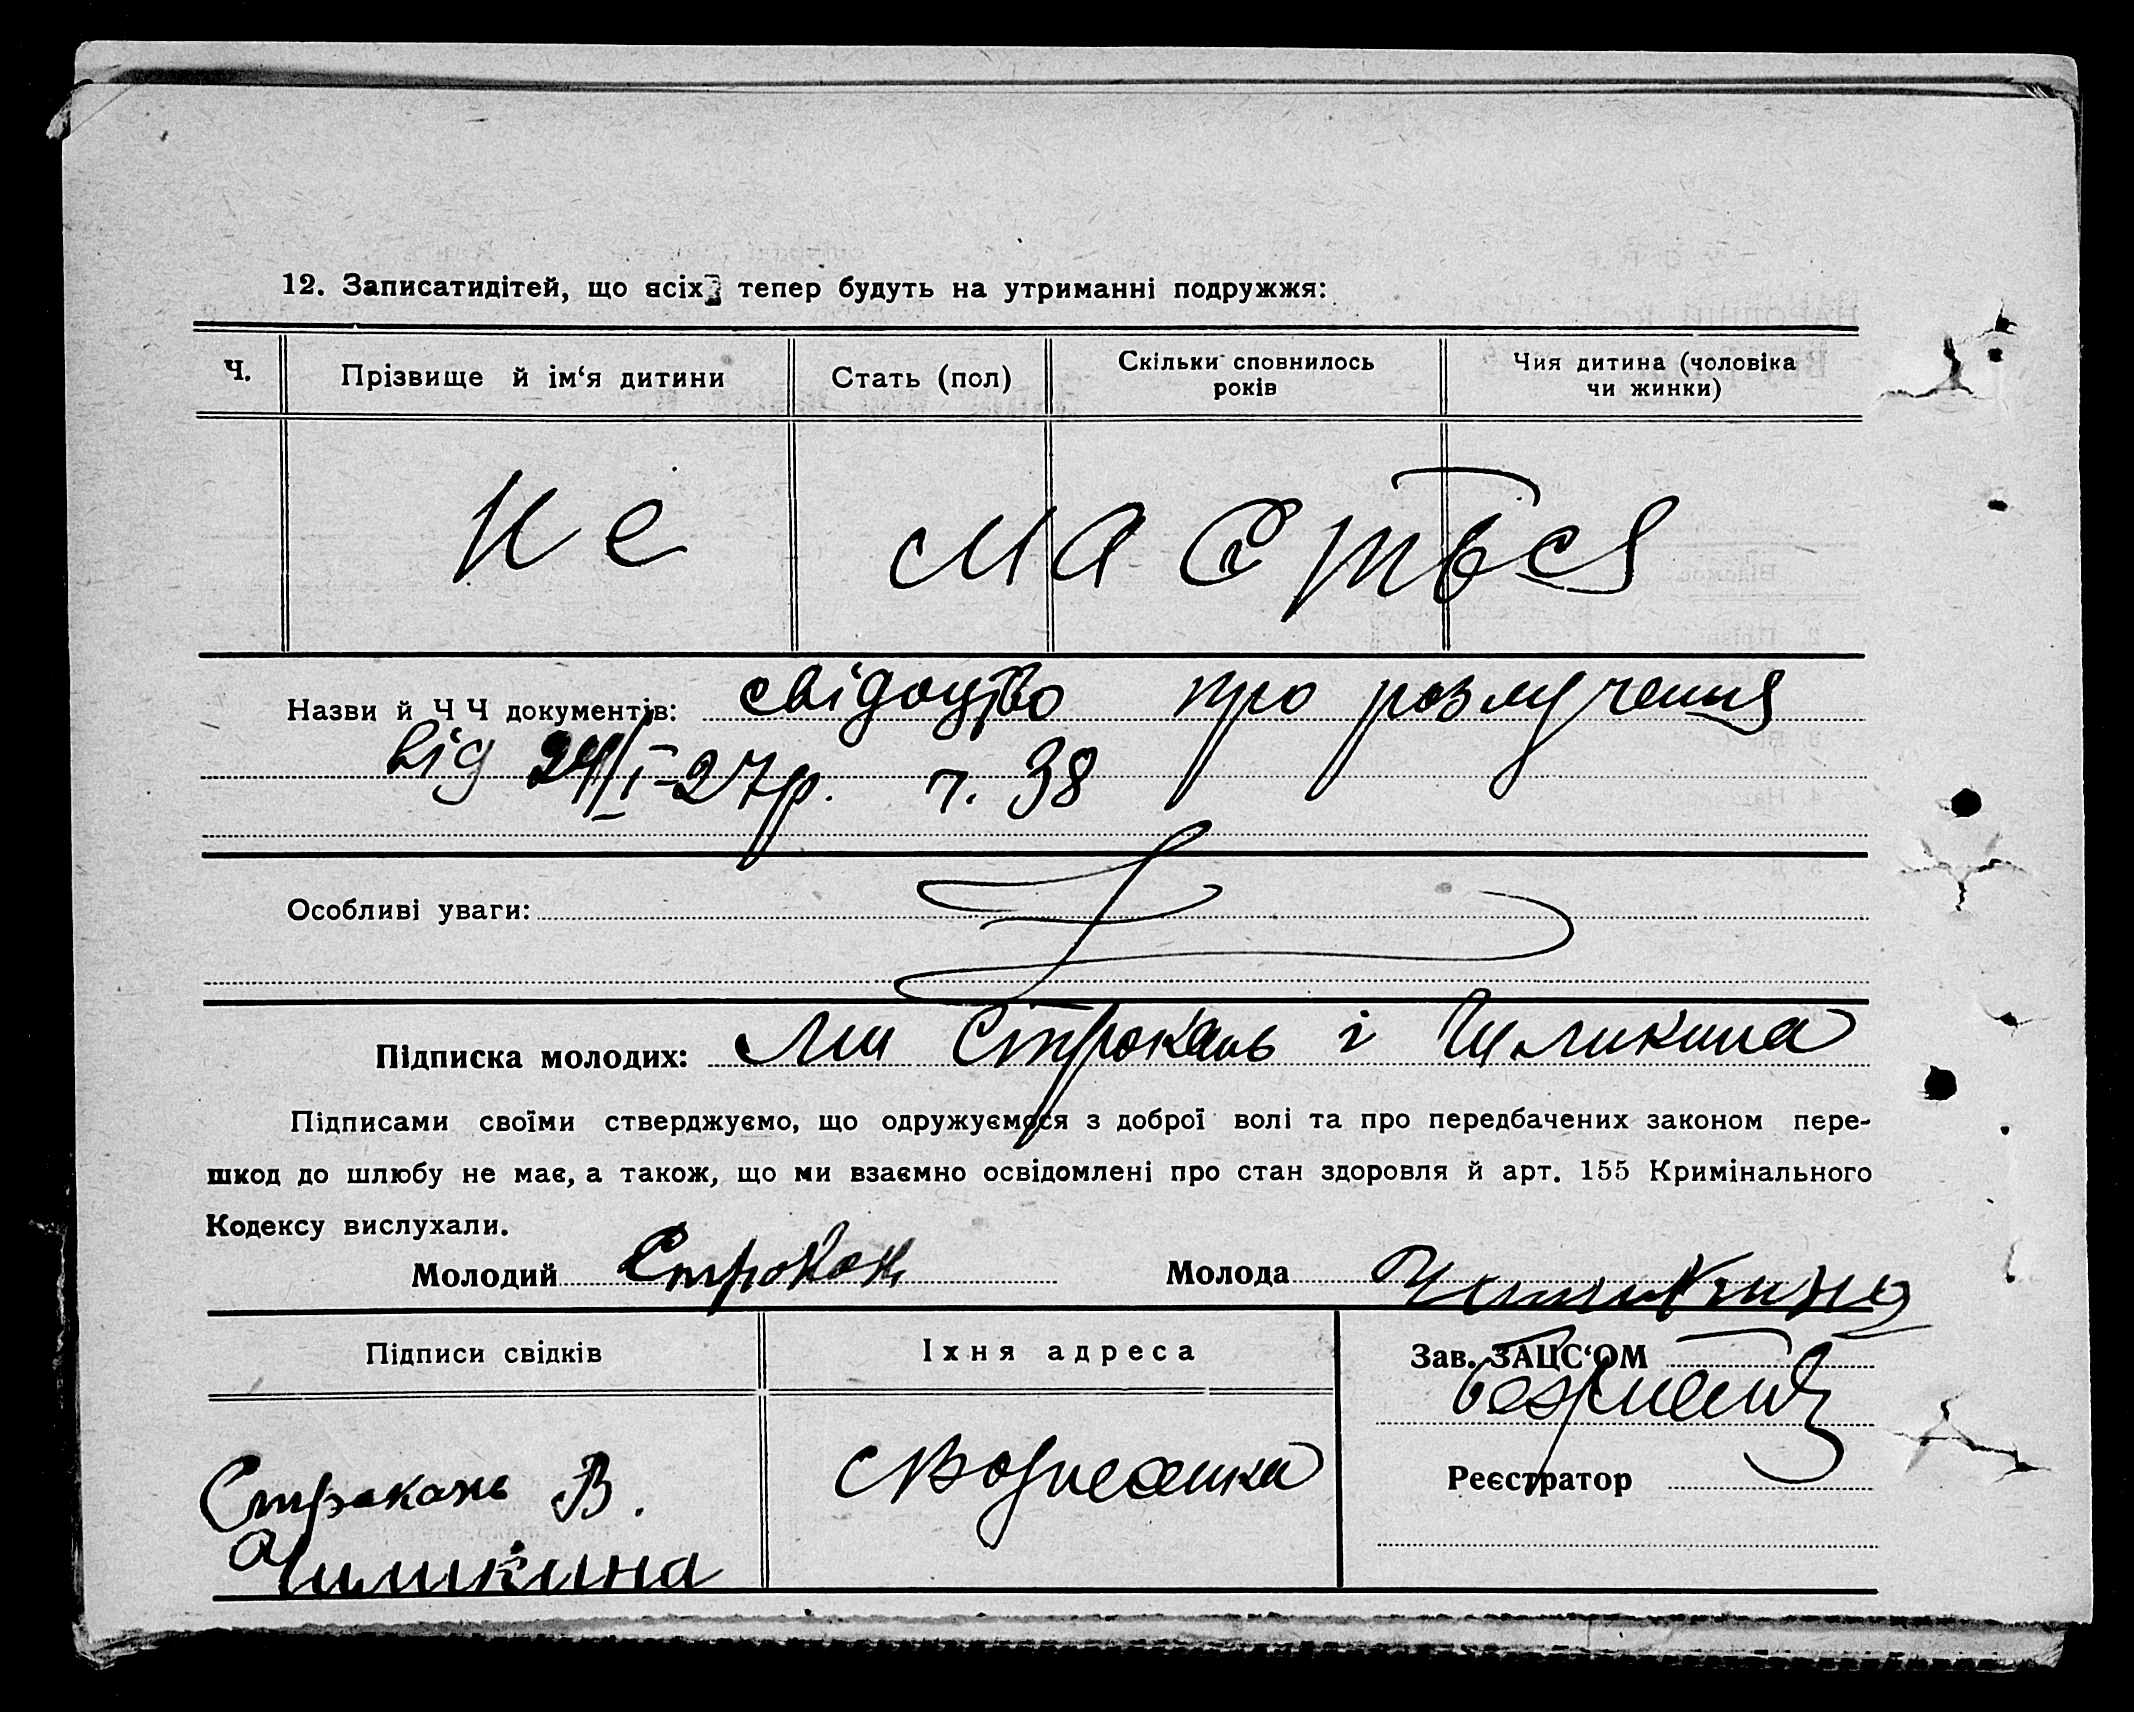 12. Записатидітей, що всіх тепер будуть на утриманні подружжя:
Ч.
Прізвище й ім‘я дитини
Стать (пол)
Скільки сповнилось
років
Чия дитина (чоловіка
чи жинки)
не мається
Назви й Ч Ч документів: свідоцтво про розлучення
від 24/I-27р. ч. 38
Особливі уваги:
Підписка молодих: Ми Строкань і
Підписами своїми стверджуємо, що одружуємося з доброї волі та про передбачених законом пере-
шкод до шлюбу не має, а також, що ми взаємно освідомлені про стан здоровля й арт. 155 Кримінального
Кодексу вислухали.
Молодий Строкан Молода
Підписи свідків
Їхня адреса
Зав. ЗАЦС‘ОМ
Строкань В.
Чиликина
Реєстратор